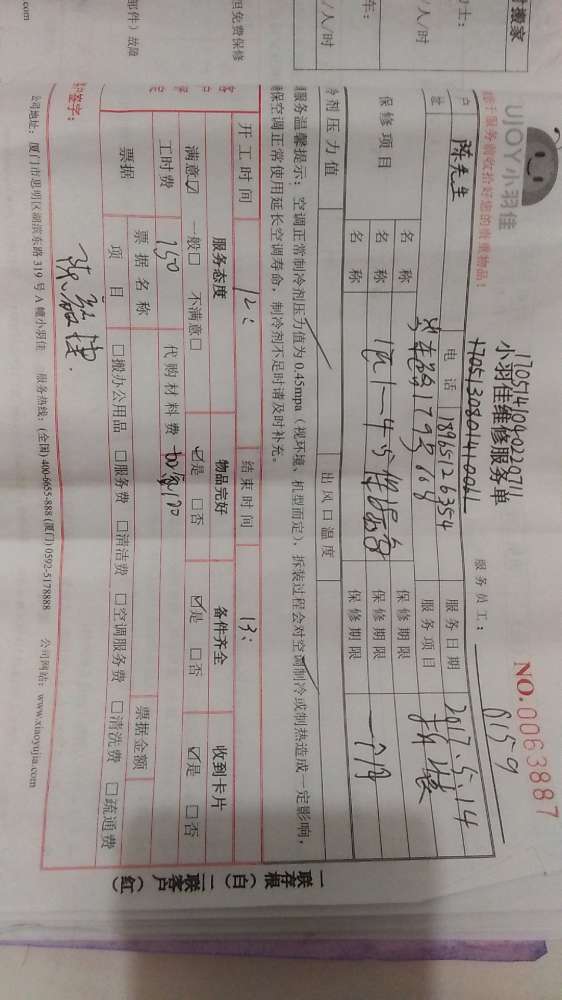 UJOY小羽佳
170514104022071
小羽佳维修服务单
1705130801410061
服务员工：
0159
NO.0063887
户
陈先生
电话
18965126354
服务日期
2017.5.14
服务项目
拆装
保修项目
名称
保修期限
名称
保修期限
一个月
名称
保修期限
剂压力值
出风口温度
服务温馨提示：空调正常制冷剂压力值为0.45mpa（视环境、机型而定），拆装过程会对空调制冷或制热造成一定影响，
保空调正常使用延长空调寿命，制冷剂不足时请及时补充。
开工时间
12：
结束时间
13：
服务态度
物品完好
备件齐全
收到卡片
满意☑ 一般□ 不满意□
☑是 □否
☑是 □否
☑是 □否
工时费
150
代购材料费
票据
票据名称
票据金额
项目
□搬办公用品 □服务费 □清洁费 □空调服务费 □清洗费 □疏通费
签字：
公司地址：厦门市思明区湖滨东路319号A幢小羽佳 服务热线：(全国)400-6655-888 (厦门)0592-5178888 公司网站：www.xiaoyujia.com
一联存根（白）二联客户（红）
时搬家
/人/时
/人/时
车：
但免费保修
部件）故障
.com